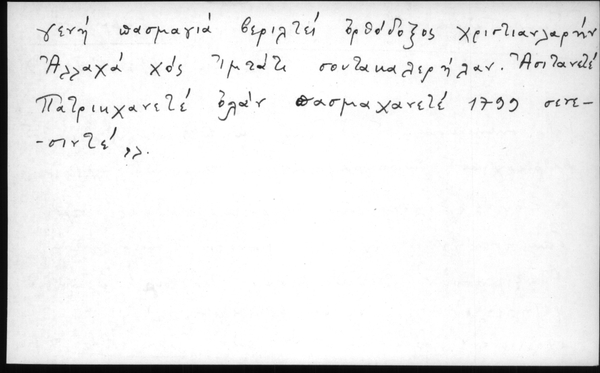 γενή πασμαγιά βεριλτεί ὀρθόδοξος χριστιανλαρήν
Ἀλλαχά χός Ἰμτάτι σουτακαλερήλαν. Ἀσιτανετέ
Πατρικχανετέ ὀλάν πασμαχανετέ 1799 σενε-
-σιντέ,,.